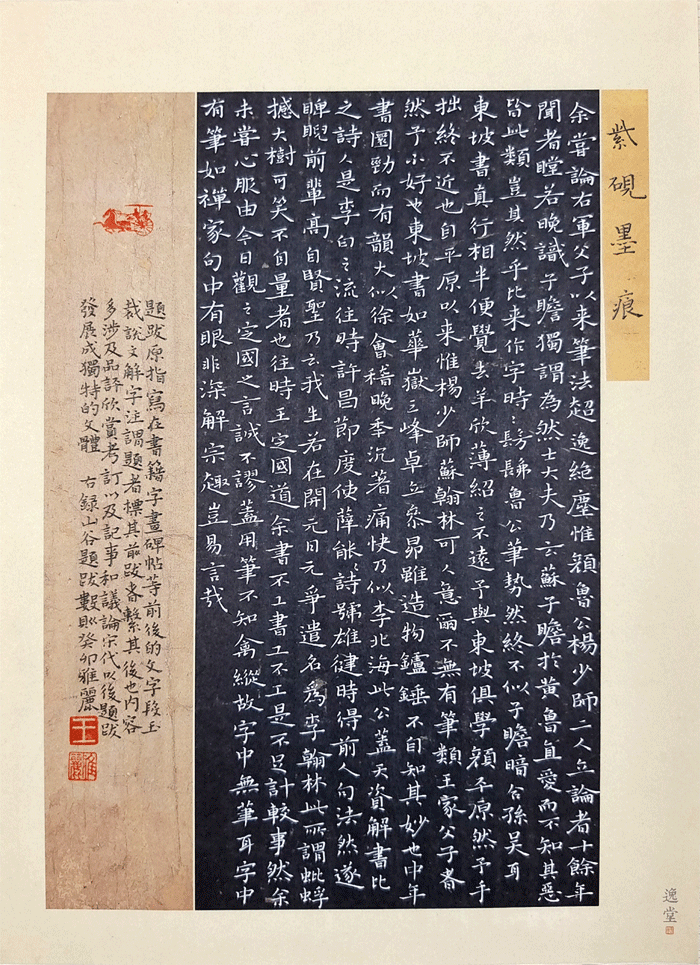 紫硯墨痕
余嘗論右軍父子以来筆法超逸絶塵惟顏魯公楊少師二人立論者十餘年
聞者瞠若晚識子瞻獨謂為然士大夫乃云蘇子瞻於黄魯直愛而不知其惡
皆此類豈其然乎比来作字時髣髴魯公筆勢然終不似子瞻暗合孫吴耳
東坡書真行相半便覺去羊欣薄紹之不遠予與東坡俱學顏平原然予手
拙終不近也自平原以来惟楊少師蘇翰林可人意爾不無有筆類王家父子者
然予不好也東坡書如華嶽三峰卓立参昴雖造物鑪錘不自知其妙也中年
書圜勁而有韻大似徐會稽晚季沉著痛快乃似李北海此公蓋天資解書比
之詩人是李白之流往時許昌節度使薛能詩號雄健時得前人句法然遂
睥睨前輩高自賢聖乃云我生若在開元日争遣名為李翰林此所謂蚍蜉
撼大樹可笑不自量者也往時王定國道余書不工書工不工是不足計較事然余
未嘗心服由今日觀之定國之言誠不謬蓋用筆不知禽縱故字中無筆耳字中
有筆如禪家句中有眼非深解宗趣豈易言哉
題跋原指寫在書籍字畫碑帖等前後的文字段玉
裁說文解字注謂題者標其前跋者繫其後也内容
多涉及品評欣賞考訂以及記事和議論宋代以後題跋
發展成獨特的文體 古録山谷題跋數則癸卯雅麗
王
雅麗
逸堂